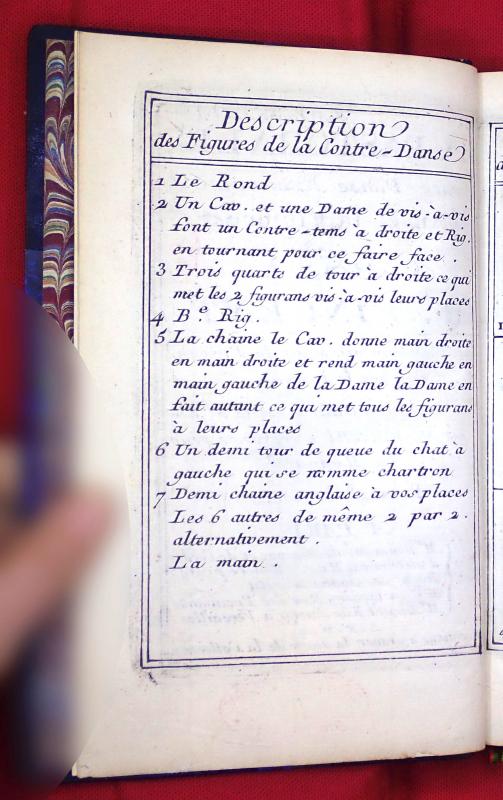 Description
des Figures de la Contre-Danse
1 Le Rond
2 Un Cav. et une Dame de vis-à-vis
font un Contre-tems à droite et Rig.
en tournant pour ce faire face.
3 Trois quarts de tour à droite ce qui
met les 2 figurans vis-à-vis leurs places
4 B.e Rig.
5 La chaine le Cav. donne main droite
en main droite et rend main gauche en
main gauche de la Dame la Dame en
fait autant ce qui met tous les figurans
à leurs places
6 Un demi tour de queue du chat à
gauche qui se nomme chartron
7 Demi chaine anglaise à vos places
Les 6 autres de même 2 par 2.
alternativement.
La main.